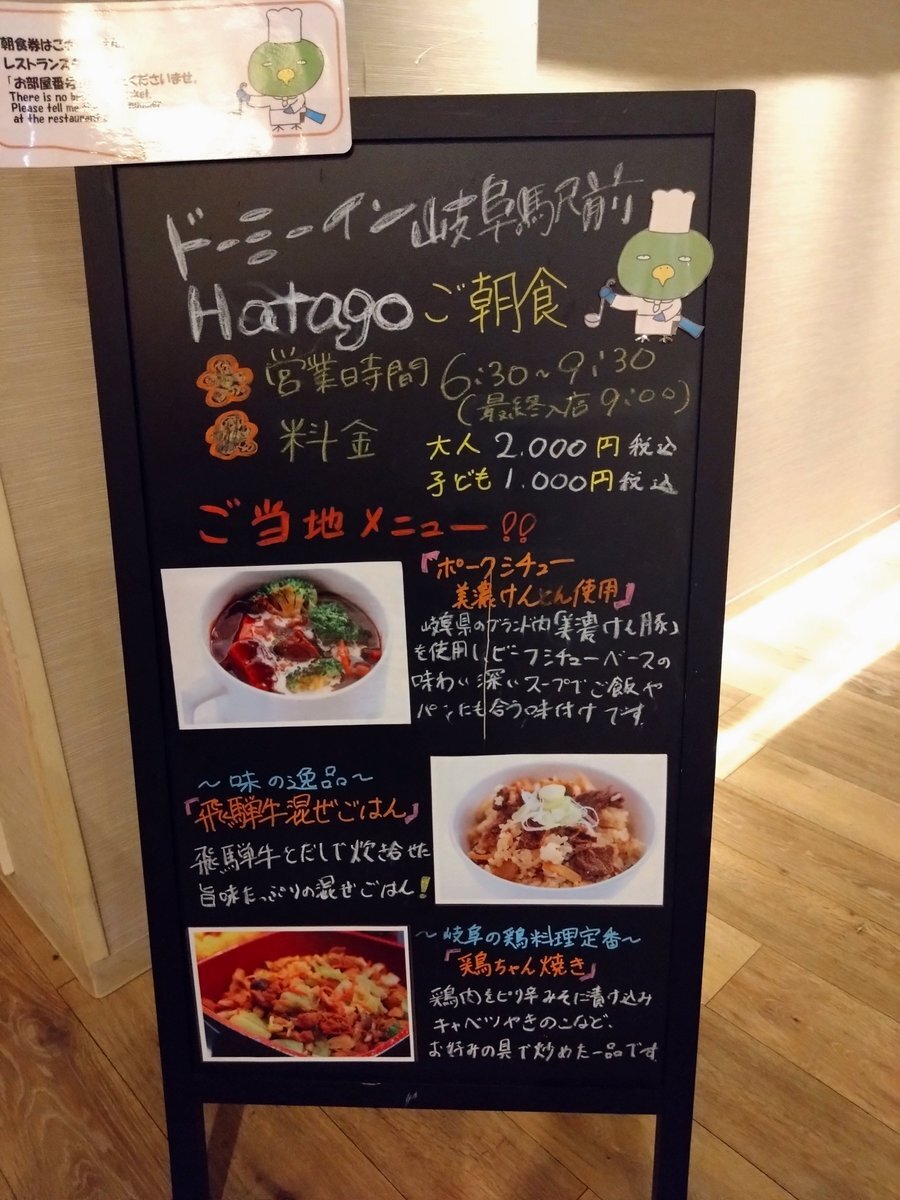 朝食券はご
レストランス
「お部屋番号 くださいませ。
There is no
Please tell me
at the restaurant
ドーミーイン岐阜駅前
Hatago ご朝食
営業時間 6:30～9:30
(最終入店 9:00)
料金 大人 2.000円税込
子ども 1.000円税込
ご当地メニュー!!
『ポークシチュー
美濃けんとん使用』
岐阜県のブランド肉「美濃けん豚」
を使用しビーフシチューベースの
味わい深いスープでご飯や
パンにも合う味付けです
～味の逸品～
『飛騨牛混ぜごはん』
飛騨牛とだしで炊き
旨味たっぷりの混ぜごはん!
～岐阜の鶏料理定番～
『鶏ちゃん焼き』
鶏肉をピリ辛みそに漬け込み
キャベツやきのこなど、
お好みの具で炒めた一品です